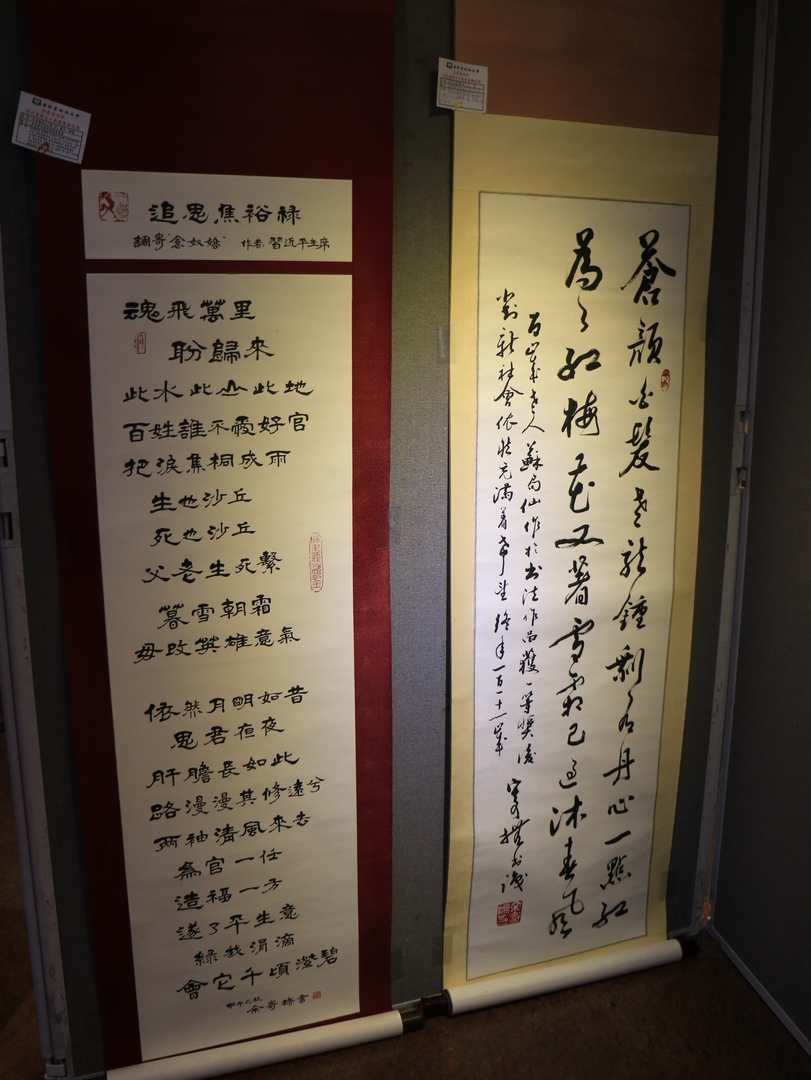 追思焦裕禄
調寄"念奴嬌" 作者:習近平主席
魂飛萬里
盼歸來
此水此山此地
百姓誰不愛好官
把淚焦桐成雨
生也沙丘
死也沙丘
父老生死繫
暮雪朝霜
毋改英雄意氣
依然月明如昔
思君夜夜
肝膽長如此
路漫漫其修遠兮
兩袖清風來去
為官一任
造福一方
遂了平生意
綠我涓滴
會它千頃澄碧
甲午之秋
蒼顏白髮老龍鍾剩有丹心一點紅
為問紅梅花又著雪霜已過沐春風
百歲老人蘇局仙作於書法作品獲一等獎後
對新社會依然充滿着希望 終年一百一十一歲